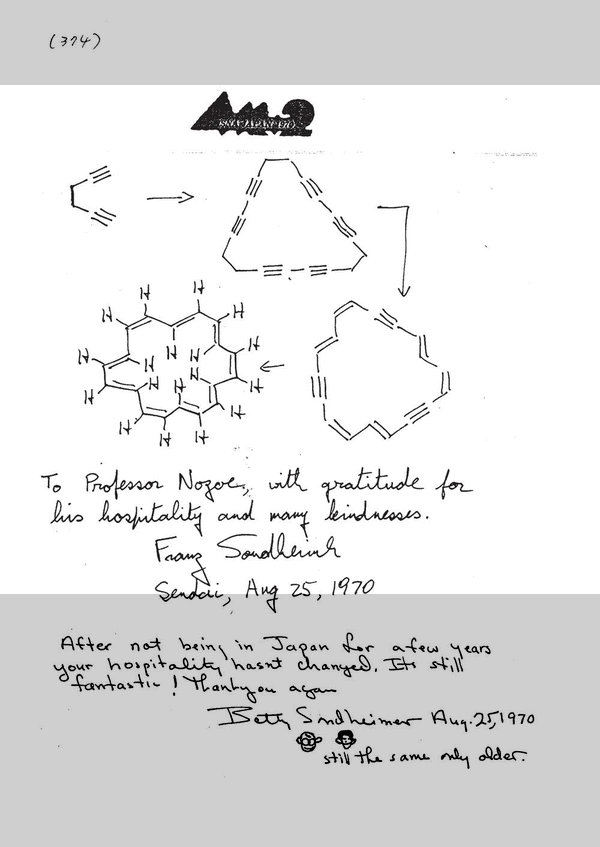 (374)
H H H H H H H H H H H H H H H H H H
To Professor Nozoe, with gratitude for
his hospitality and many kindnesses.
Franz Sondheimer
Sendai, Aug 25, 1970
After not being in Japan for a few years
your hospitality hasnt changed. Its still
fantastic! Thankyou again
Betty Sondheimer Aug. 25, 1970
still the same only older.